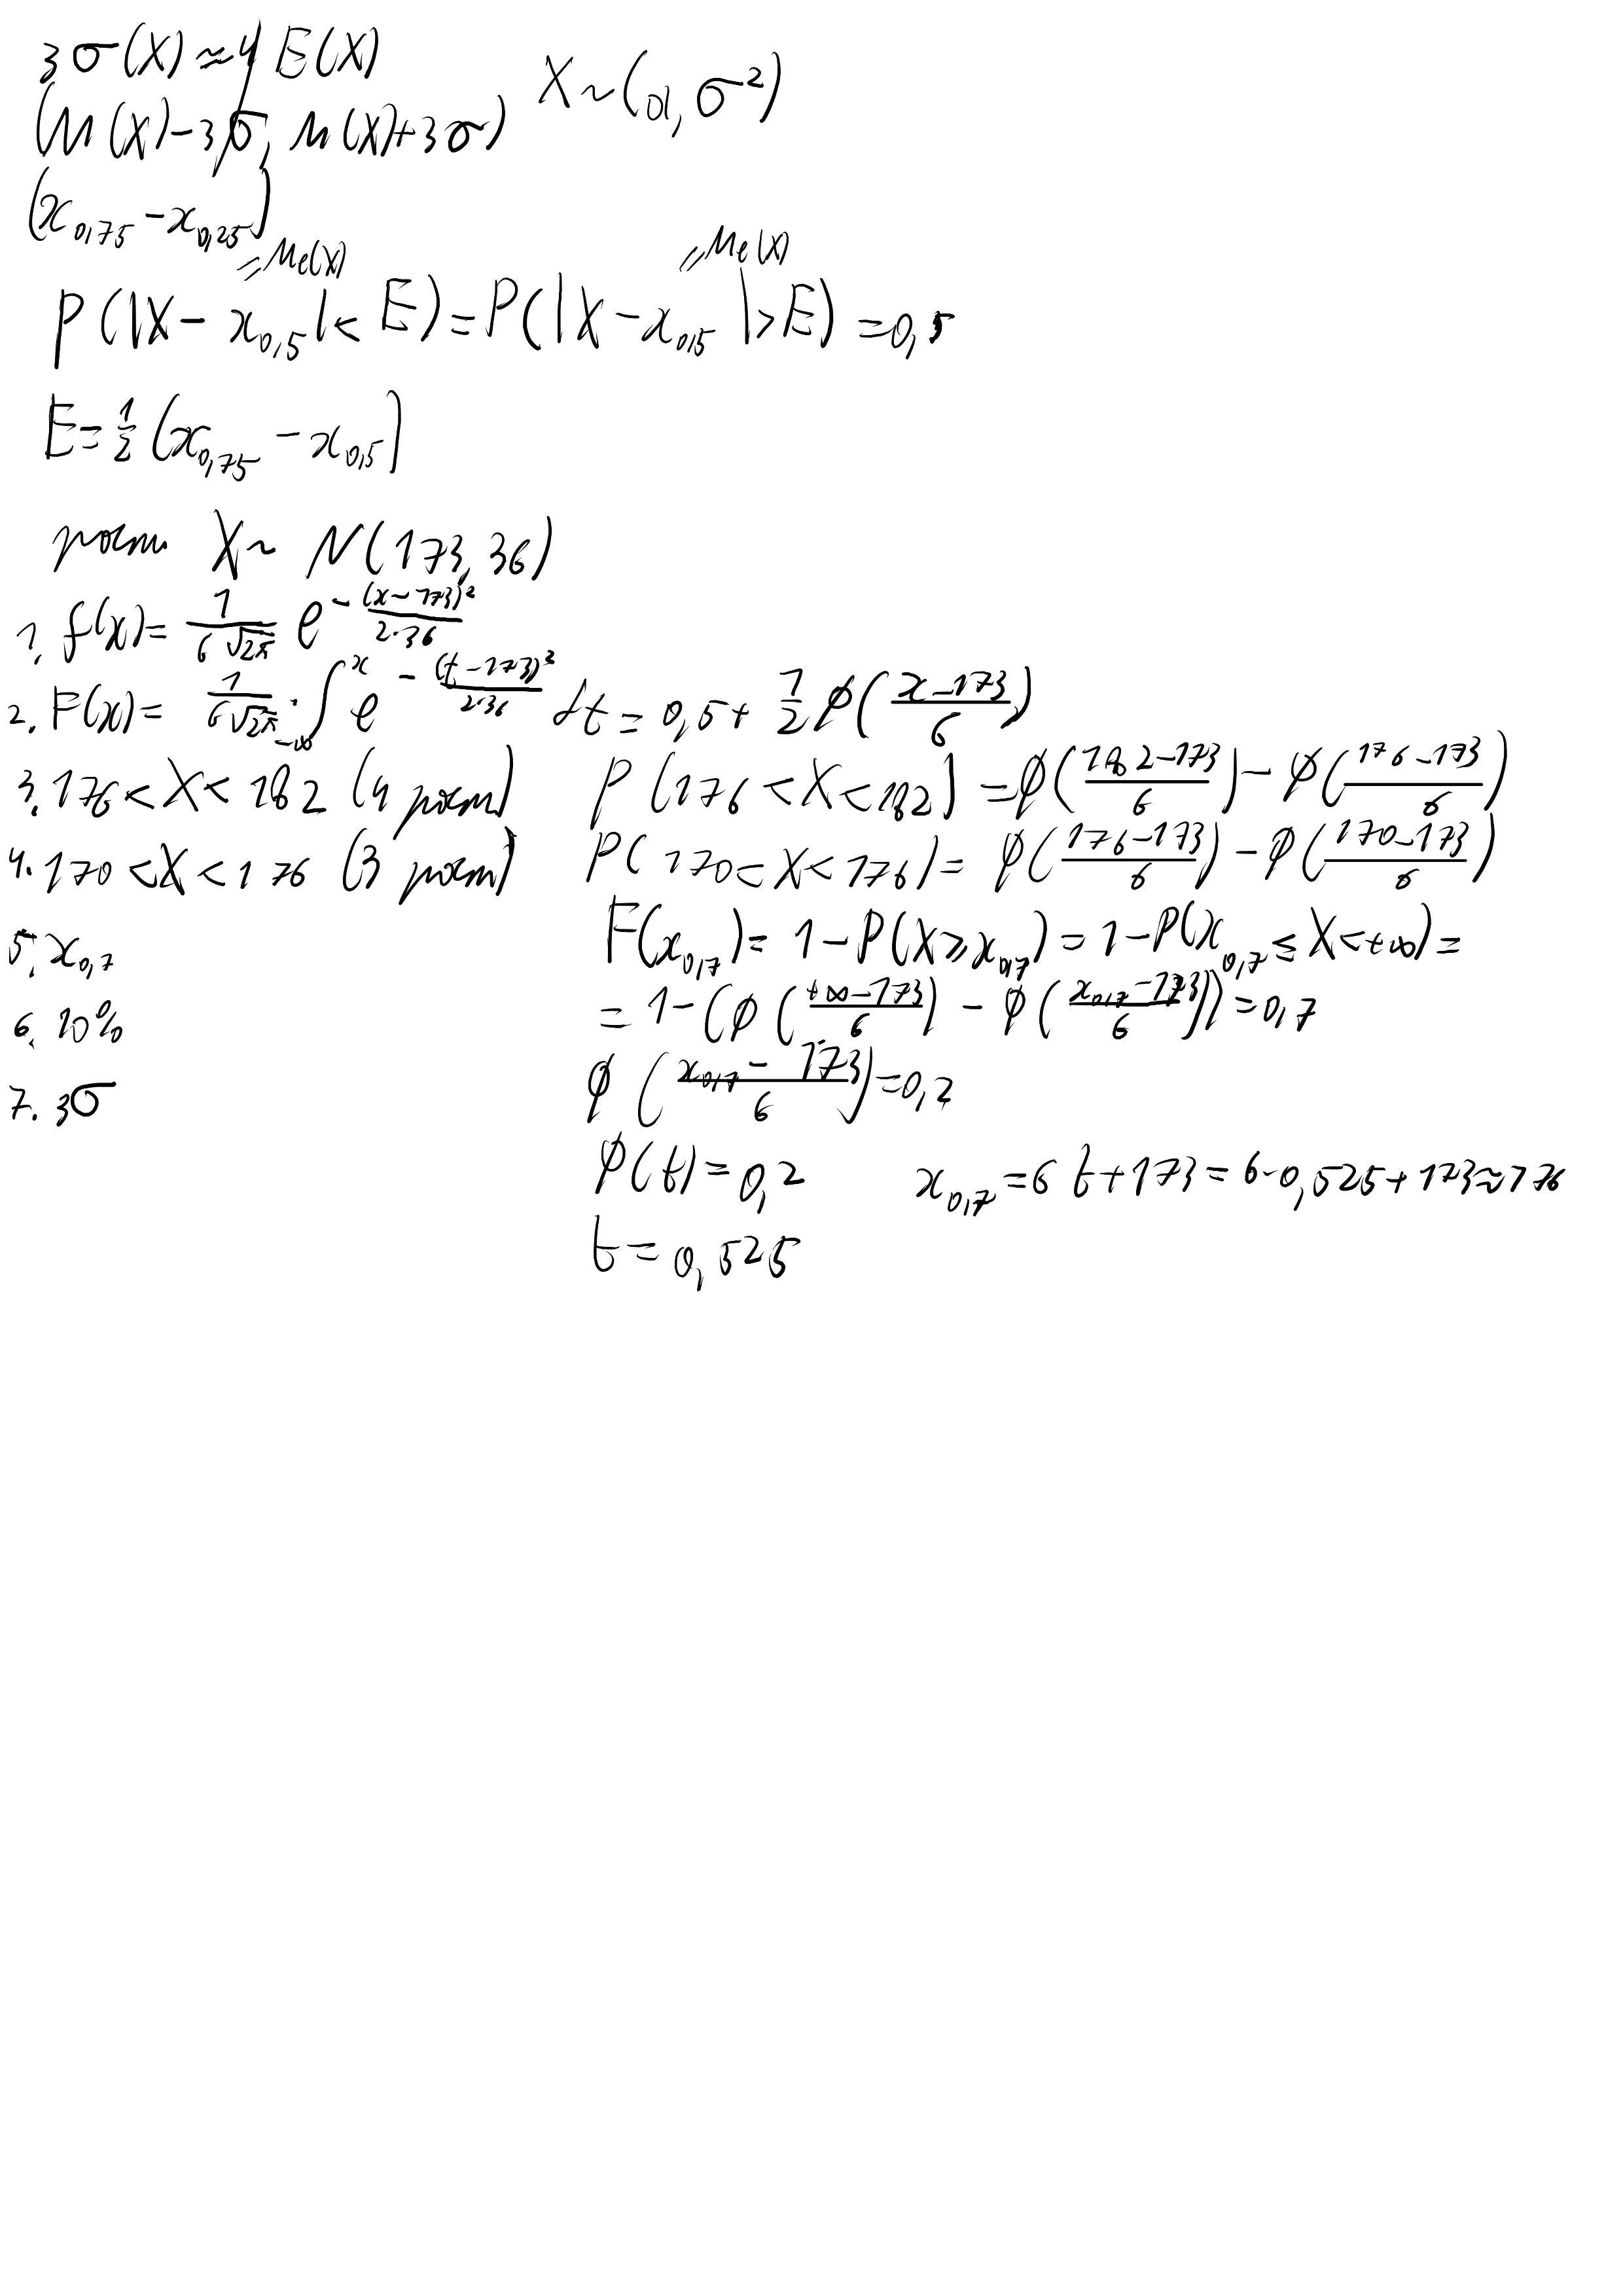 3σ(X)≈4E(X)
(M(X)-3σ, M(X)+3σ) X~(a, σ²)
(x₀,₇₅-x₀,₂₅)
=Me(X) =Me(X)
P(|X-x₀,₅|<E)=P(|X-x₀,₅|>E)=0,5
E=½(x₀,₇₅-x₀,₅)
рост X~N(173,36)
1. f(x)=1/(6√2π) e^(-(x-173)²/(2·36))
2. F(x)=1/(6√2π)·∫_{-∞}^{x} e^(-(t-173)²/(2·36)) dt=0,5+½ϕ((x-173)/6)
3. 176<X<182 (4 рост) P(176<X<182)=ϕ((182-173)/6)-ϕ((176-173)/6)
4. 170<X<176 (3 рост) P(170<X<176)=ϕ((176-173)/6)-ϕ((170-173)/6)
5. x₀,₇ F(x₀,₇)=1-P(X≥x₀,₇)=1-P(x₀,₇≤X<+∞)=
6. 10% =1-(ϕ((+∞-173)/6)-ϕ((x₀,₇-173)/6))=0,7
7. 3σ ϕ((x₀,₇-173)/6)=0,2
ϕ(t)=0,2 x₀,₇=6t+173=6·0,525+173≈176
t=0,525